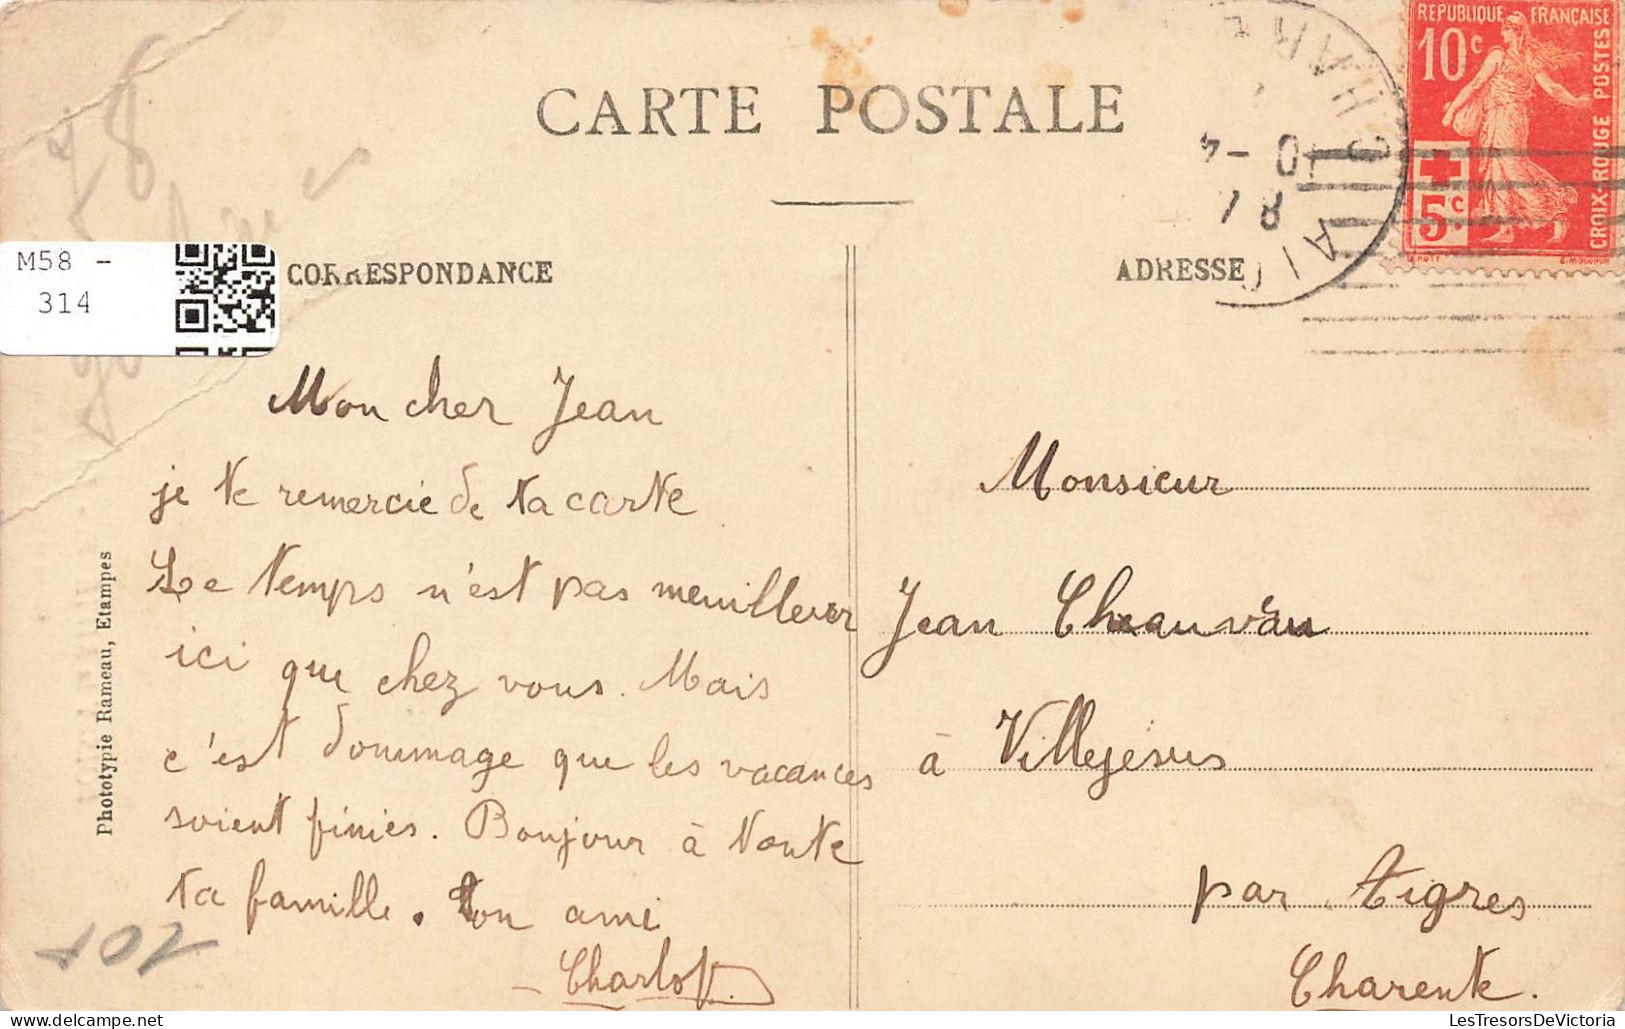 CARTE POSTALE
REPUBLIQUE FRANÇAISE
10c
5c
CROIX-ROUGE POSTES
10 - 4
M58 -
314
CORRESPONDANCE
ADRESSE
Mon cher Jean
je te remercie de ta carte
Le temps n'est pas meuilleur
ici que chez vous. Mais
c'est dommage que les vacances
soient finies. Bonjour à toute
ta famille. Ton ami
Charlot
Monsieur
Jean Chauvau
à Villejésus
par Aigres
Charente.
Phototypie Rameau, Etampes
LesTresorsDeVictoria